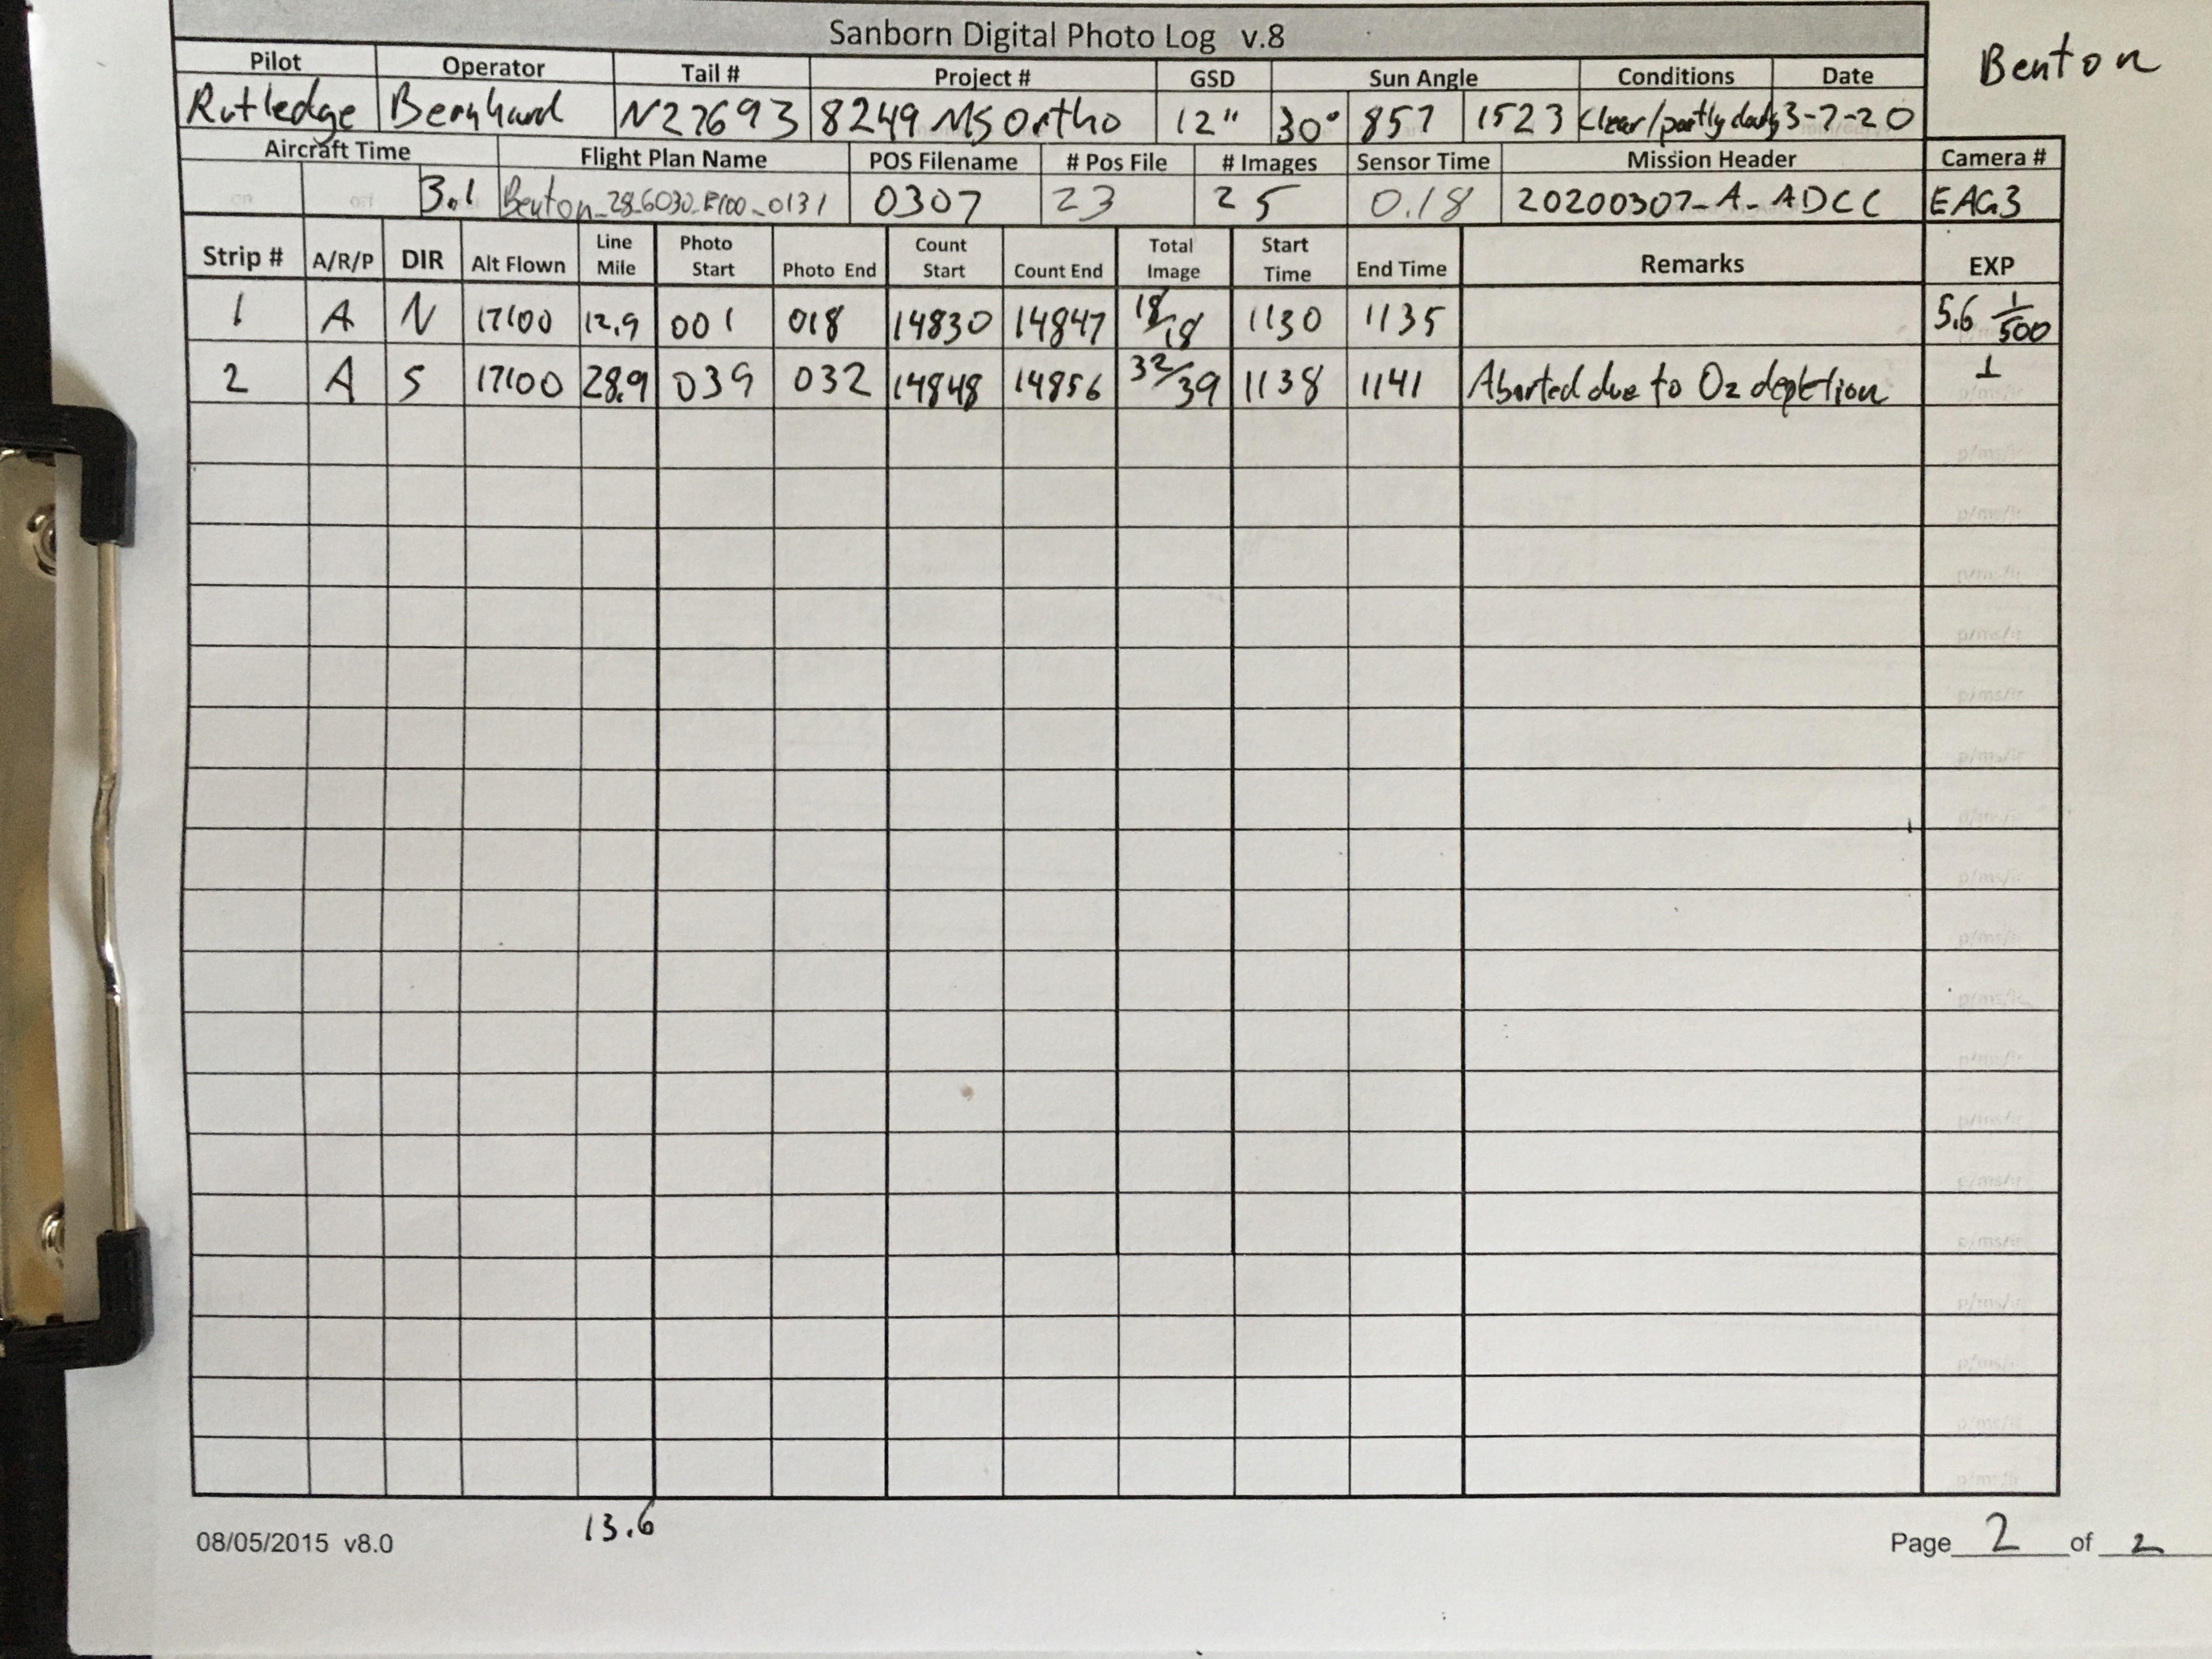 Sanborn Digital Photo Log v.8
Benton
Pilot Operator Tail # Project # GSD Sun Angle Conditions Date
Rutledge Bernhard N27693 8249 MS Ortho 12" 30° 857 1523 Clear/partly cloudy 3-7-20
Aircraft Time Flight Plan Name POS Filename # Pos File # Images Sensor Time Mission Header Camera #
3.1 Benton_28_6030_E100_0131 0307 23 25 0.18 20200307_A_ADCC EAG3
Strip # A/R/P DIR Alt Flown Line Mile Photo Start Photo End Count Start Count End Total Image Start Time End Time Remarks EXP
1 A N 17100 12.9 001 018 14830 14847 18/18 1130 1135 5.6 1/500
2 A S 17100 28.9 039 032 14848 14856 32/39 1138 1141 Aborted due to O2 depletion
13.6
08/05/2015 v8.0 Page 2 of 2